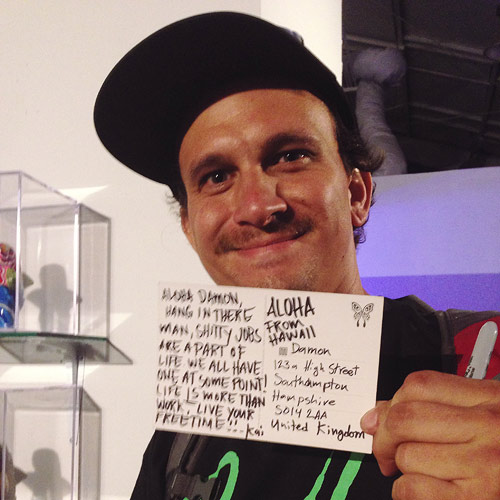 ALOHA DAMON,
HANG IN THERE
MAN, SHITTY JOBS
ARE A PART OF
LIFE WE ALL HAVE
ONE AT SOME POINT!
LIFE IS MORE THAN
WORK, LIVE YOUR
FREETIME!! - Kai
ALOHA
FROM
HAWAII
Damon
123a High Street
Southampton
Hampshire
SO14 2AA
United Kingdom